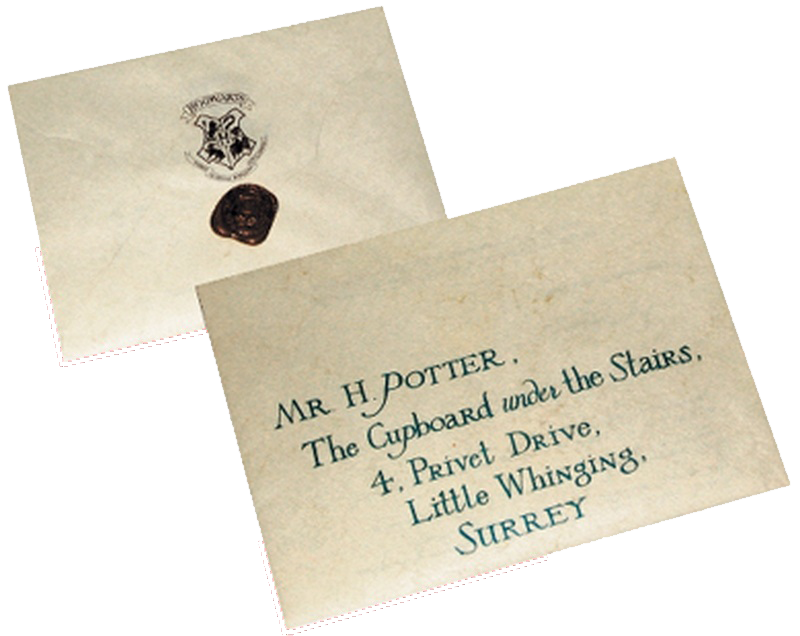 HOGWARTS
Mr. H. POTTER,
The Cupboard under the Stairs,
4, Privet Drive,
Little Whinging,
SURREY